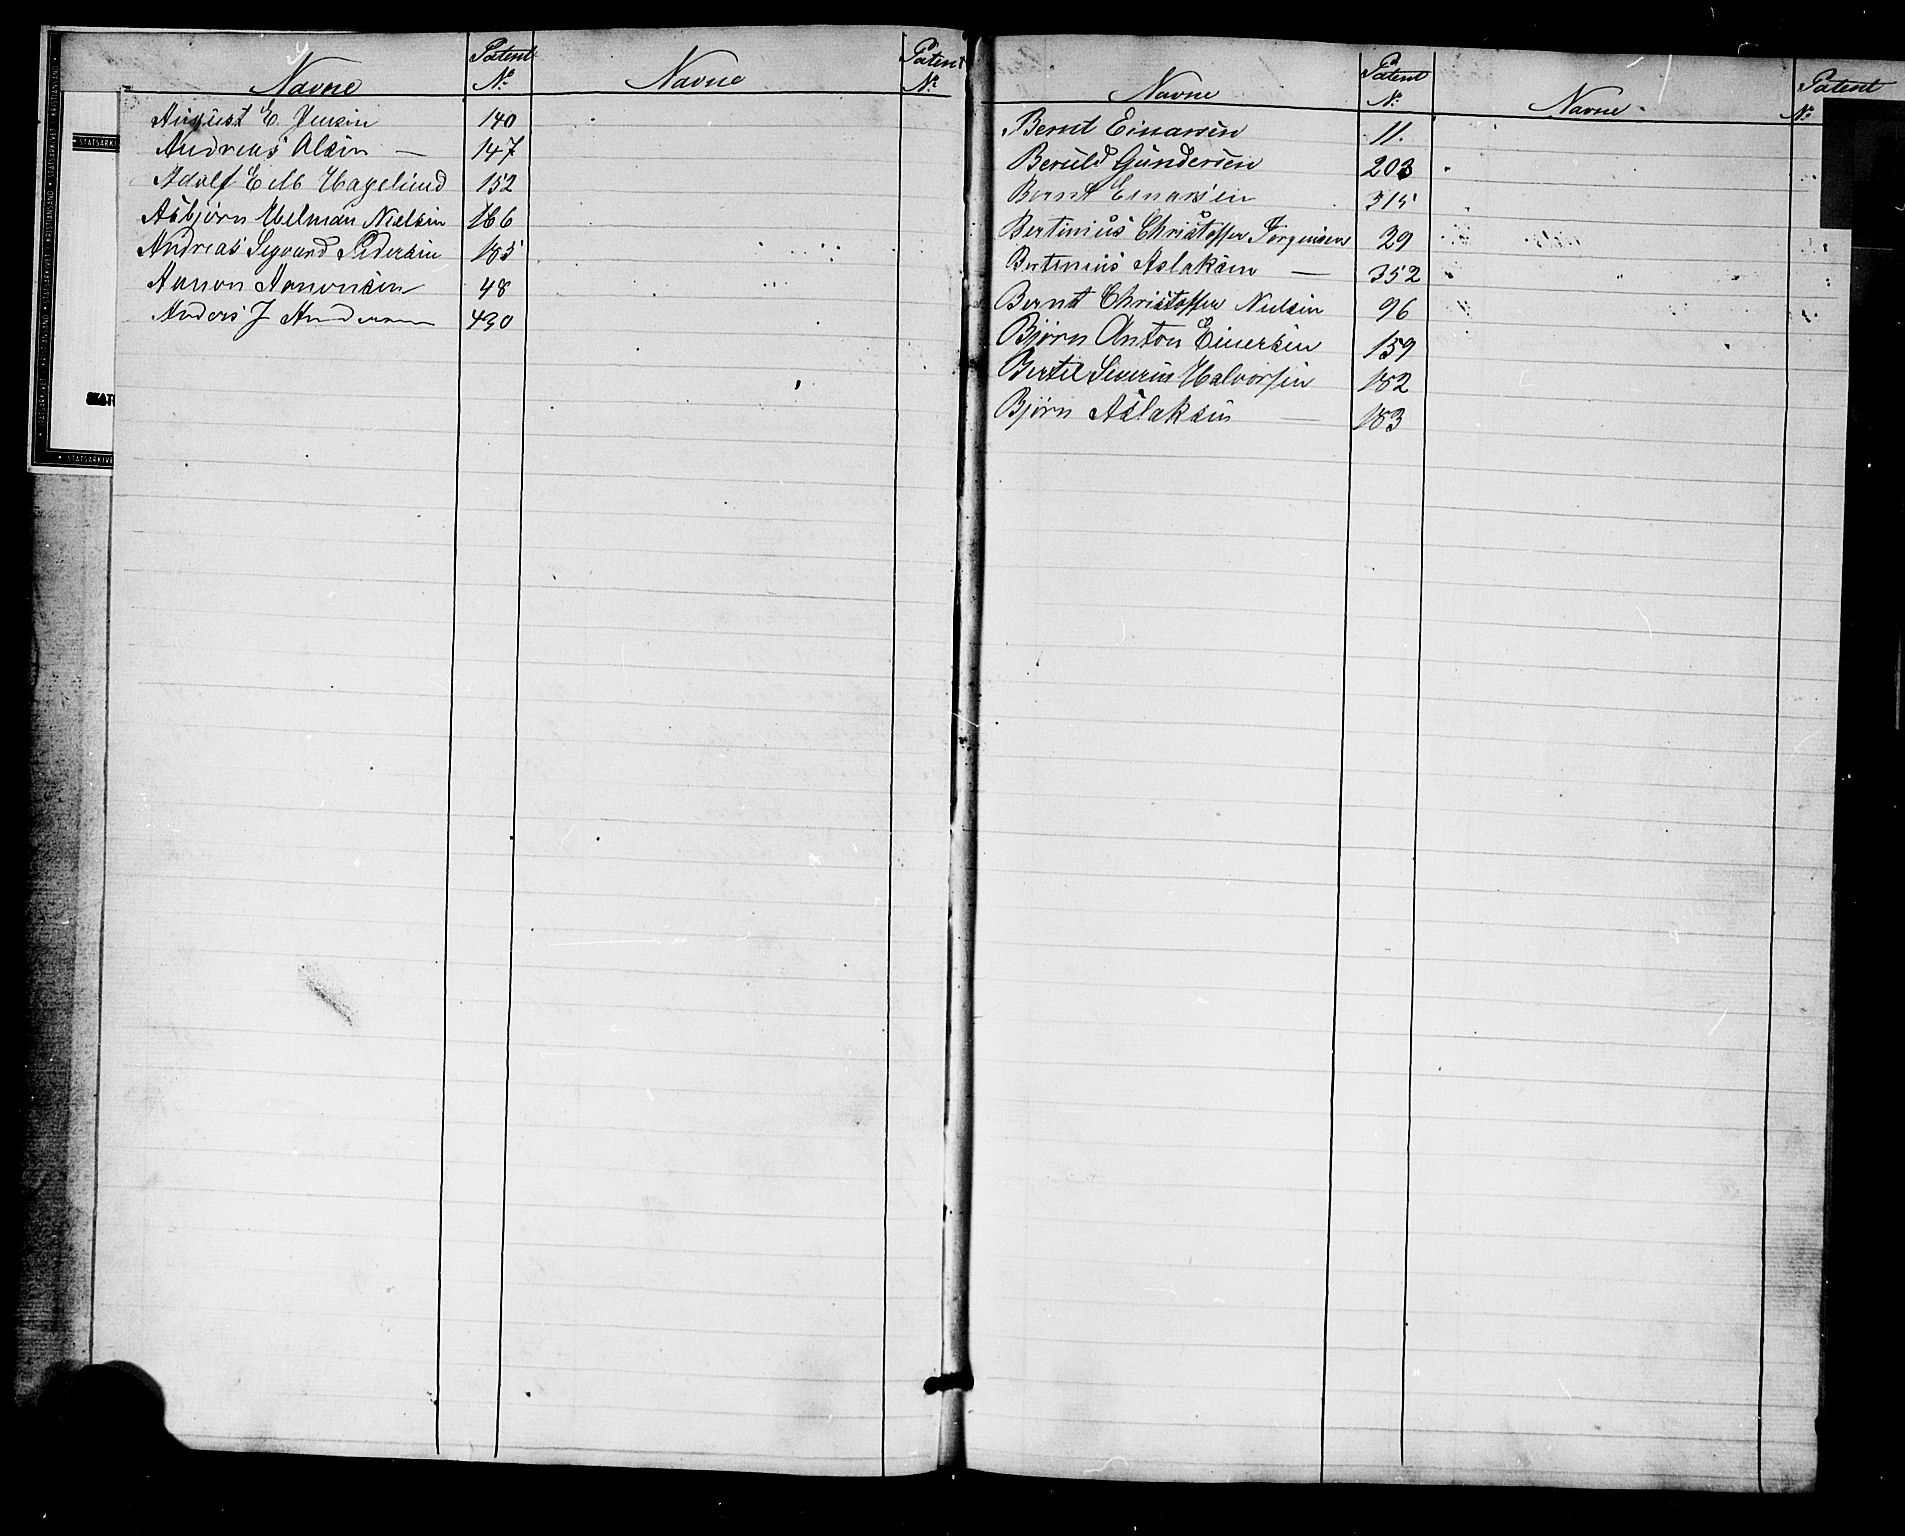 Navne Patent No Navne Patent No
August E. Jensen 140
Andreas Olsen — 147
Adolf Emb Hagelund 152
Asbjørn Abelman Nielsen 166
Andreas Segvand Pedersen 185
Aanon Aanonsen 48
Anders J Andersen 430
Navne Patent No Navne Patent No
Bernt Einarsen 11.
Beruld Gundersen 203
Bernt Einarsen 315
Bertinius Christoffer Jørgensen 29
Bertinius Aslaksen — 352
Bernt Christoffer Nielsen 96
Bjørn Anton Einersen 159
Bertel Severin Halvorsen 182
Bjørn Aslaksen — 183
STATSARKIVET KRISTIANSAND